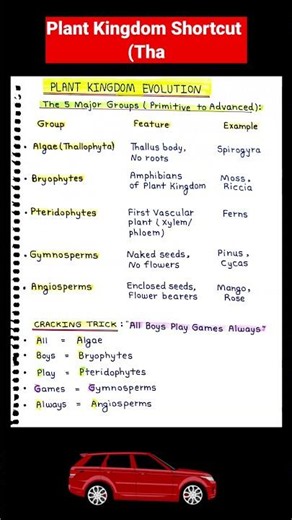 Plant Kingdom Shortcut
(Tha
PLANT KINGDOM EVOLUTION
The 5 Major Groups (Primitive to Advanced):
Group Feature Example
• Algae (Thallophyta) Thallus body, Spirogyra
No roots
• Bryophytes Amphibians Moss,
of Plant Kingdom Riccia
• Pteridophytes First Vascular Ferns
plant (Xylem/
phloem)
• Gymnosperms Naked seeds, Pinus,
No flowers Cycas
• Angiosperms Enclosed seeds, Mango,
Flower bearers Rose
CRACKING TRICK: "All Boys Play Games Always"
• All = Algae
• Boys = Bryophytes
• Play = Pteridophytes
• Games = Gymnosperms
• Always = Angiosperms